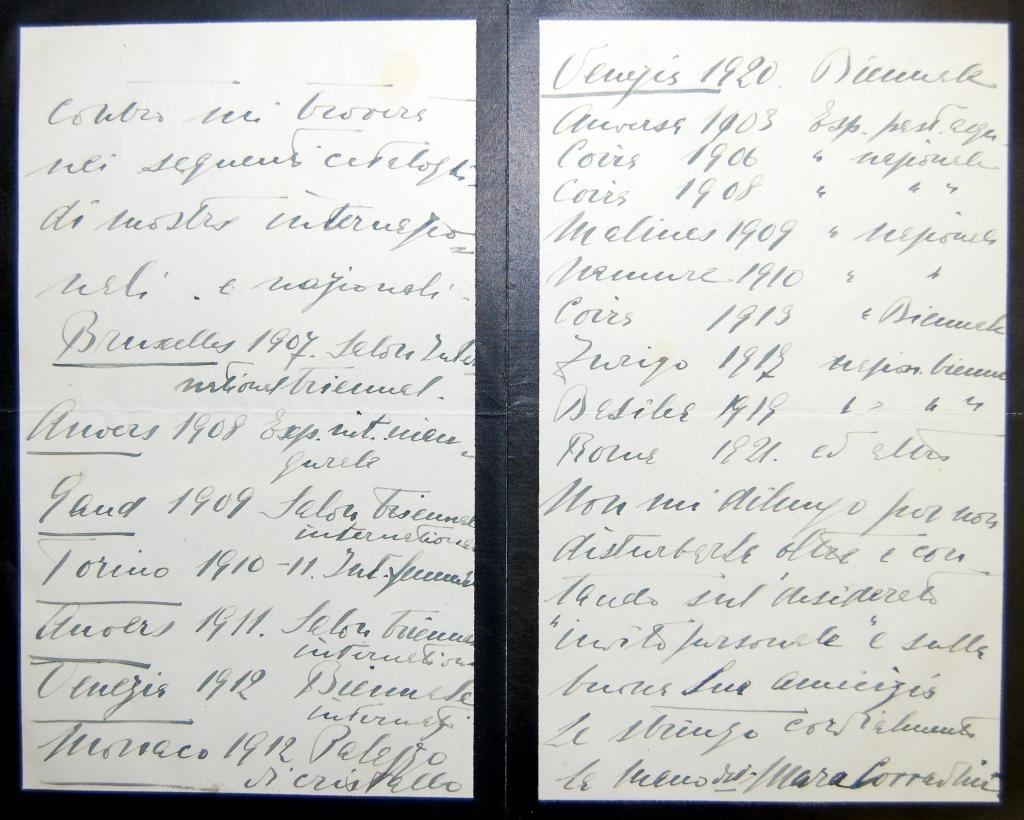 contro mi troverà
nei seguenti cataloghi
di mostre internazio=
nali e nazionali.
Bruxelles 1907. Salon Inter
national triennal.
Anvers 1908 Exp. int. inau-
gurale
Gand 1909 Salon triennal
international
Torino 1910-11. Int. femmi
Anvers 1911. Salon trienna
internation
Venezia 1912 Biennale
internazi
Monaco 1912 Palazzo
di cristallo
Venezia 1920. Biennale
Anversa 1903 Esp. past. aqu.
Coira 1906 " nazionale
Coira 1908 " " "
Malines 1909 " nazionale
Namure 1910 " "
Coira 1913 " Biennale
Zurigo 1917 nazion. bienna
Basilea 1919 " " " "
Roma 1921. ed altre
Non mi dilungo per non
disturbarla oltre e con
tando sul desiderato
"invito personale" e sulla
buona Sua amicizia
Le stringo cordialmente
la mano Mara Corradini